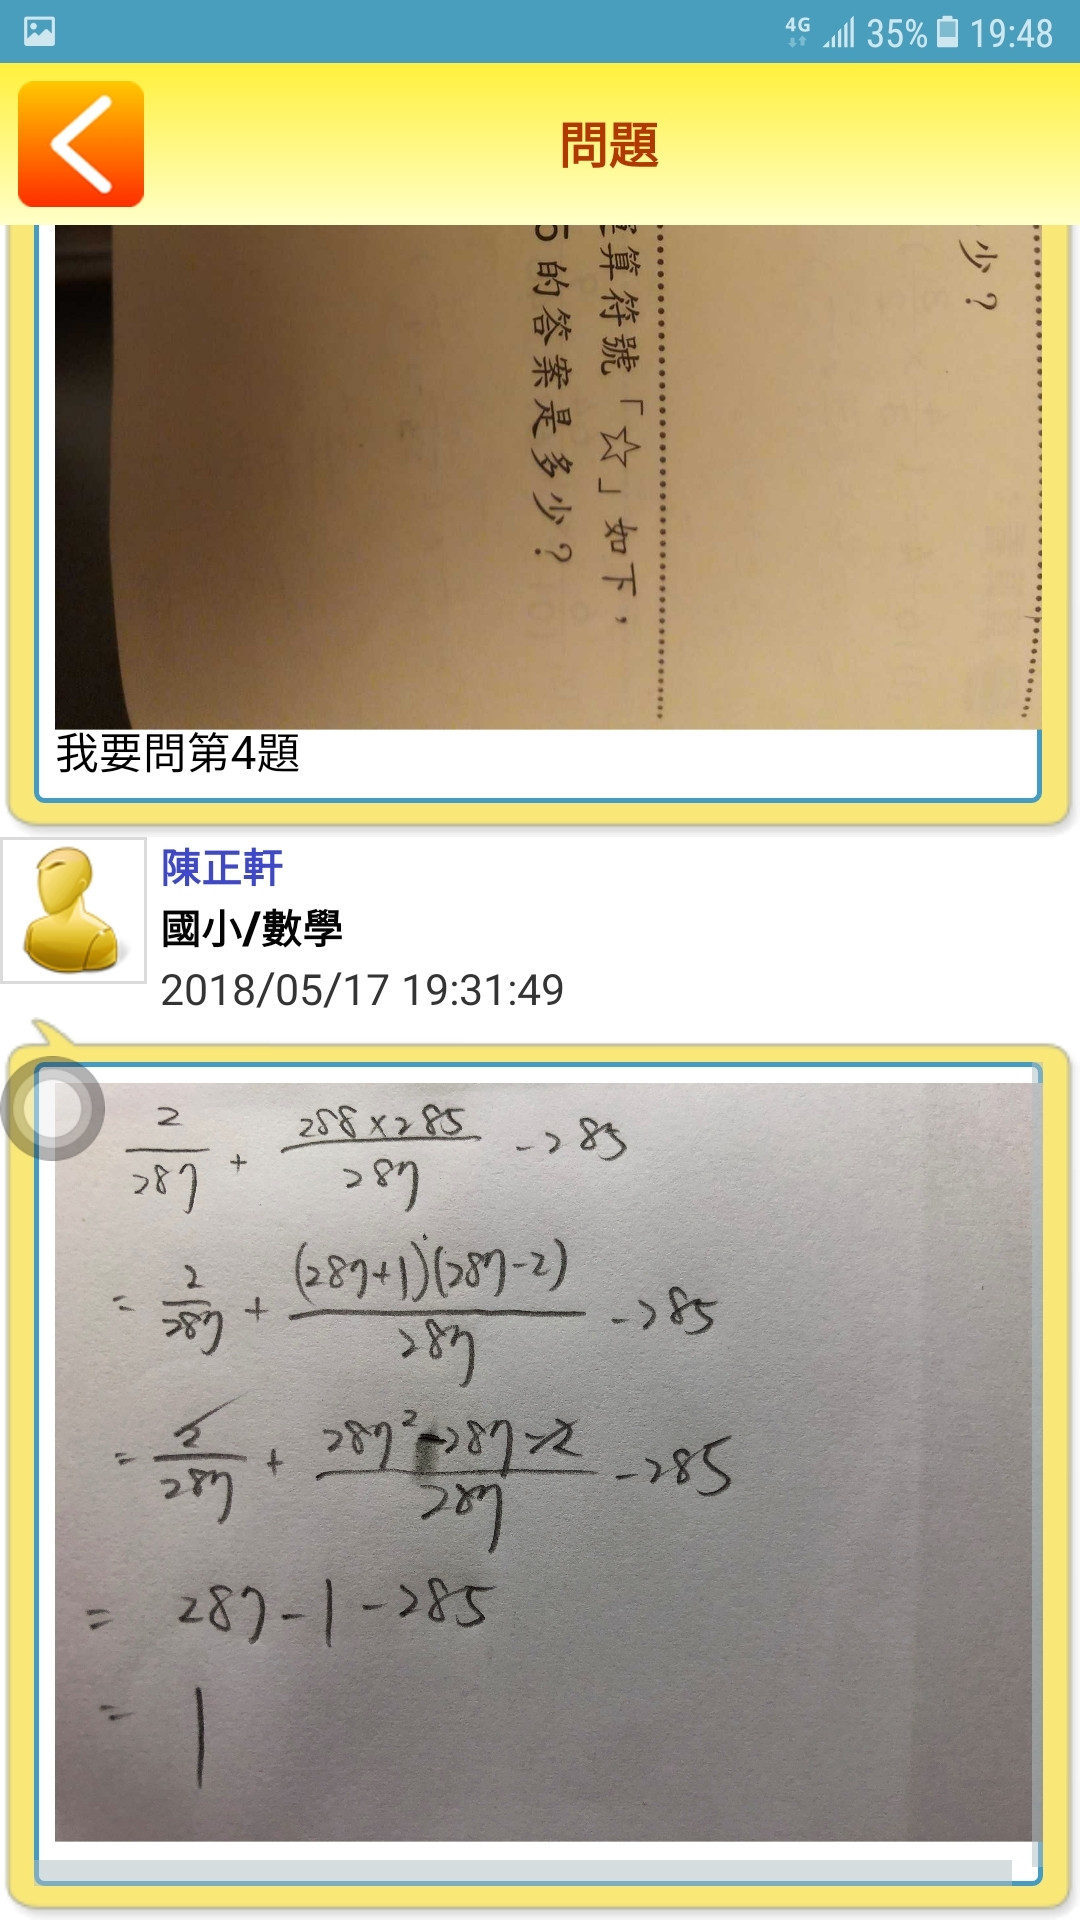 4G 35% 19:48
問題
少？
算符號「☆」如下，
5的答案是多少？
我要問第4題
陳正軒
國小/數學
2018/05/17 19:31:49
2/287 + 288×285/287 -285
= 2/287 + (287+1)(287-2)/287 -285
= 2/287 + 287²-287-2/287 -285
= 287-1-285
= 1